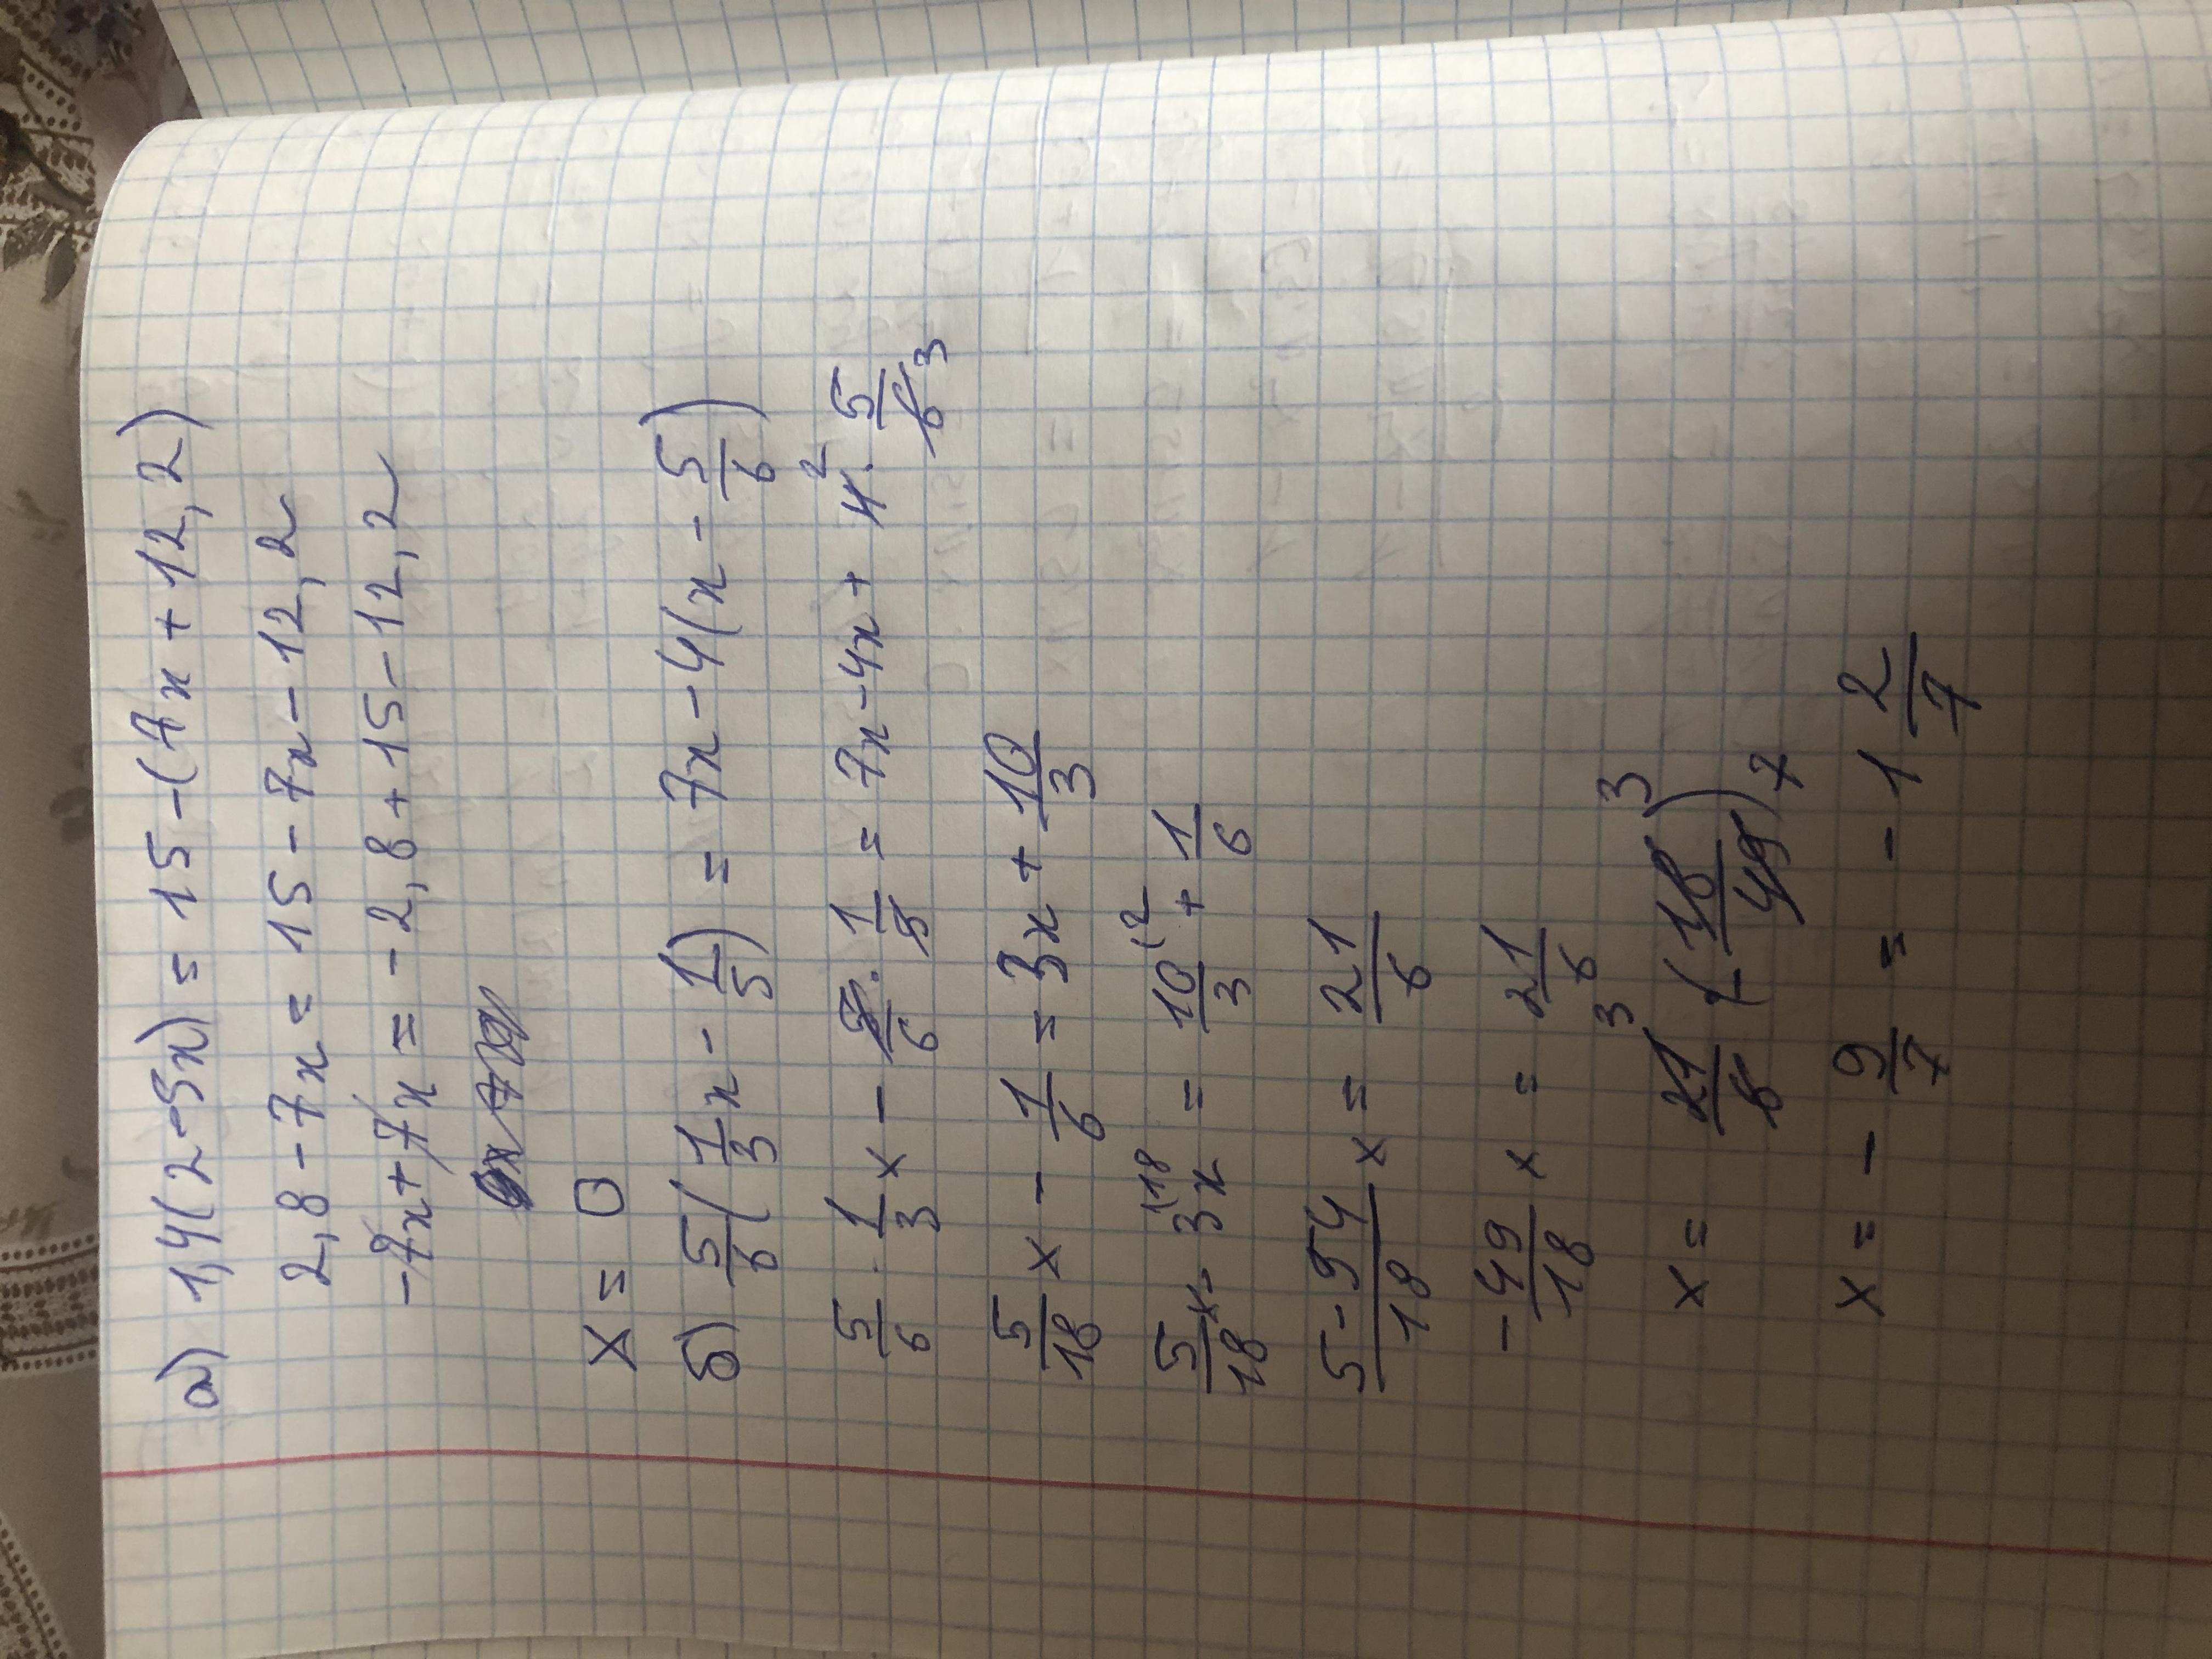 а) 1,4(2-5x) = 15-(7x+12,2)
2,8-7x = 15-7x-12,2
-7x+7x = -2,8+15-12,2
x = 0
б) 5/6(1/3x - 1/5) = 7x-4(x-5/6)
5/6 · 1/3 x - 5/6 · 1/5 = 7x-4x+ 4² · 5/6 3
5/18 x - 1/6 = 3x + 10/3
5/18 x - 3x(18 = 10/3(2 + 1/6
5-54/18 x = 21/6
-49/18 x = 21/6
x = 21 3/6 (-18 3/49) 7
x = -9/7 = -1 2/7